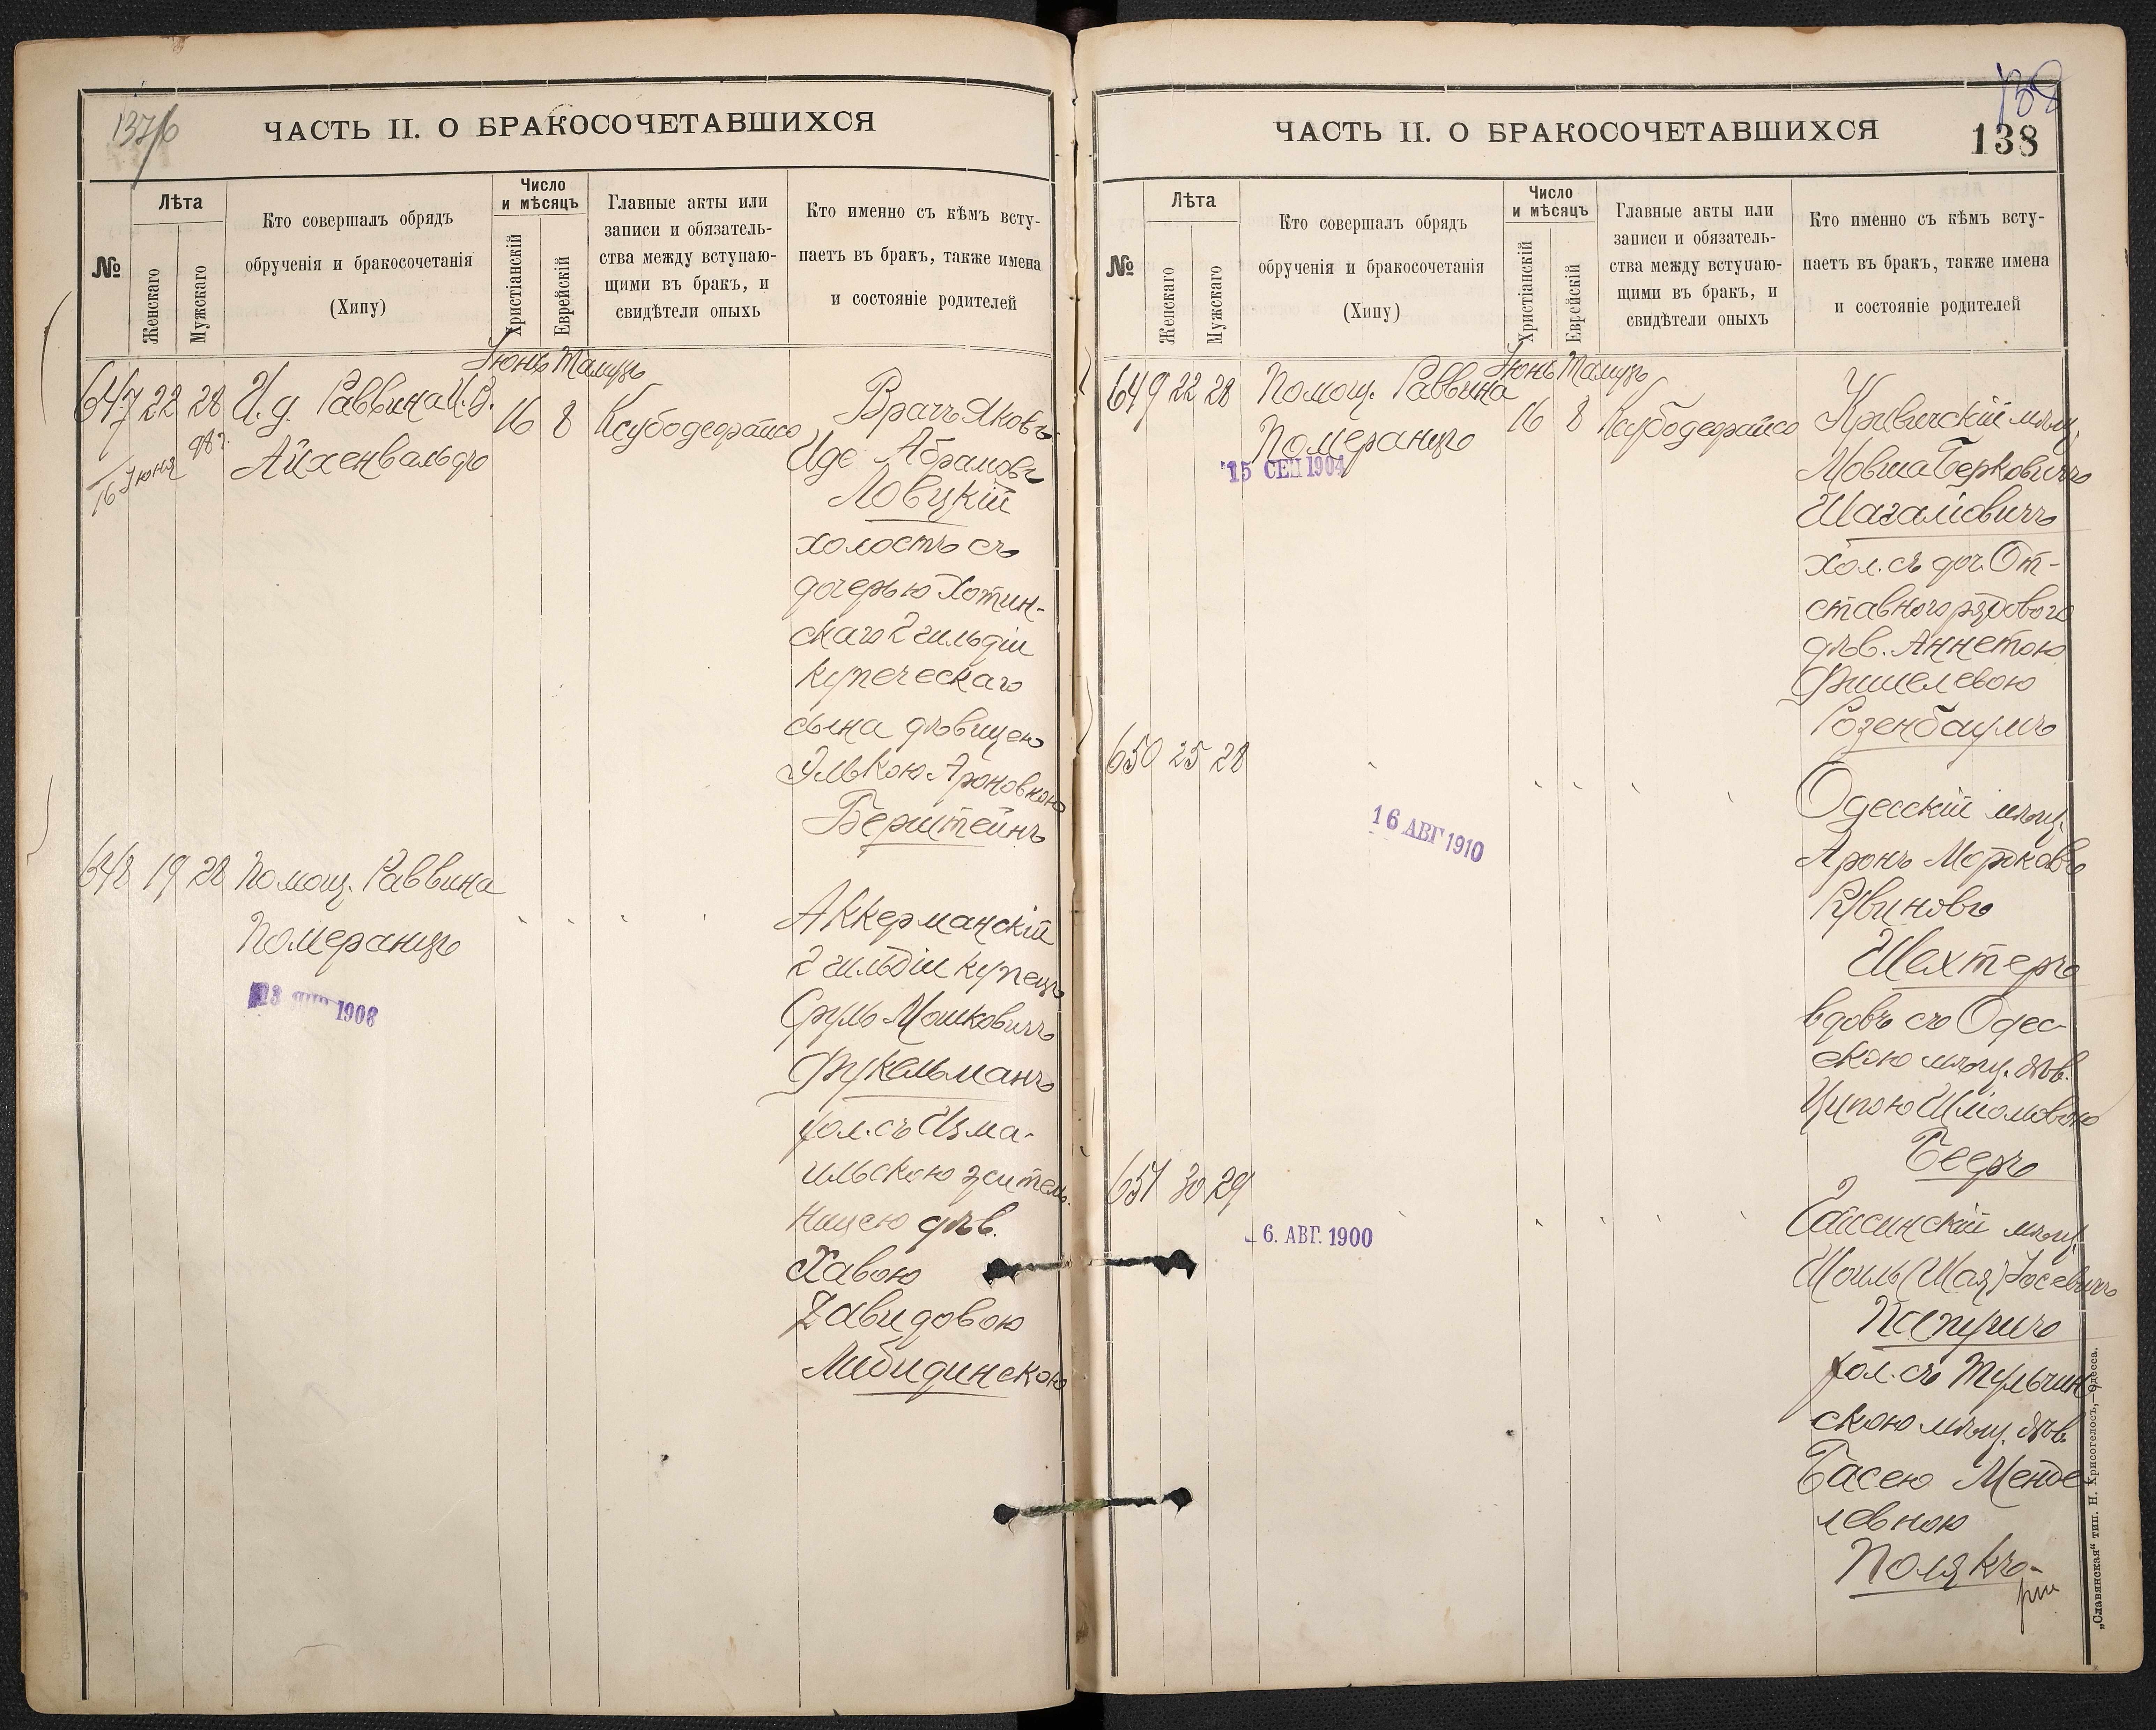 137/б
ЧАСТЬ II. О БРАКОСОЧЕТАВШИХСЯ
№
Лѣта
Женскаго
Мужскаго
Кто совершалъ обрядъ
обрученія и бракосочетанія
(Хипу)
Число
и мѣсяцъ
Христіанскій
Еврейскій
Главные акты или
записи и обязатель-
ства между вступаю-
щими въ бракъ, и
свидѣтели оныхъ
Кто именно съ кѣмъ всту-
паетъ въ бракъ, также имена
и состояніе родителей
Іюнь Тамузъ
647 22 28 И. д. Раввина
Айхенвальдъ
16 Іюня
16 8 Ксубодерайсо
Врачъ Яковъ-
Иде Абрамовъ
Ловцкій
холостъ съ
дочерью Хотин-
скаго 2 гильдіи
купеческаго
сына дѣвицею
Элькою Ароновною
Берштейнъ
648 19 28 Помощ. Раввина
Померанцъ
1908
Аккерманскій
2 гильдіи купецъ
Сруль Мошковичъ
Фукельманъ
хол. съ Изма-
ильскою житель-
ницею дѣв.
Хавою
Давидовою
Либидинскою
ЧАСТЬ II. О БРАКОСОЧЕТАВШИХСЯ
138
138
№
Лѣта
Женскаго
Мужскаго
Кто совершалъ обрядъ
обрученія и бракосочетанія
(Хипу)
Число
и мѣсяцъ
Христіанскій
Еврейскій
Главные акты или
записи и обязатель-
ства между вступаю-
щими въ бракъ, и
свидѣтели оныхъ
Кто именно съ кѣмъ всту-
паетъ въ бракъ, также имена
и состояніе родителей
Іюнь Тамузъ
649 22 28 Помощ. Раввина
Померанцъ
15 СЕН 1904
16 8 Ксубодерайсо
Кривичскій мѣщ.
Мовша Берковичъ
Шагаловичъ
хол. съ доч. От-
ставного рядового
дѣв. Аннетою
Фишелевою
Розенбаумъ
650 25 28
16 АВГ 1910
Одесскій мѣщ.
Аронъ Мордковъ
Рувиновъ
Шехтеръ
вдовъ съ Одес-
скою мѣщ. дѣв.
Ципою Шлiомовою
Бееръ
651 30 29
6. АВГ. 1900
Гайсинскій мѣщ.
Шоиль (Шая) Іосевичъ
Папушъ
хол. съ Тульчин-
скою мѣщ. дѣв.
Басею Менде-
левною
Полякъ-
„Славянская“ тип. Н. Хрисогелосъ,—Одесса.